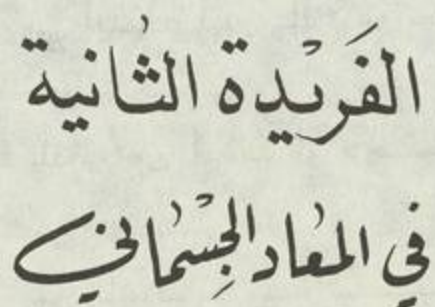 الفَريْدة الثانية
في المعاد الجِسْماني